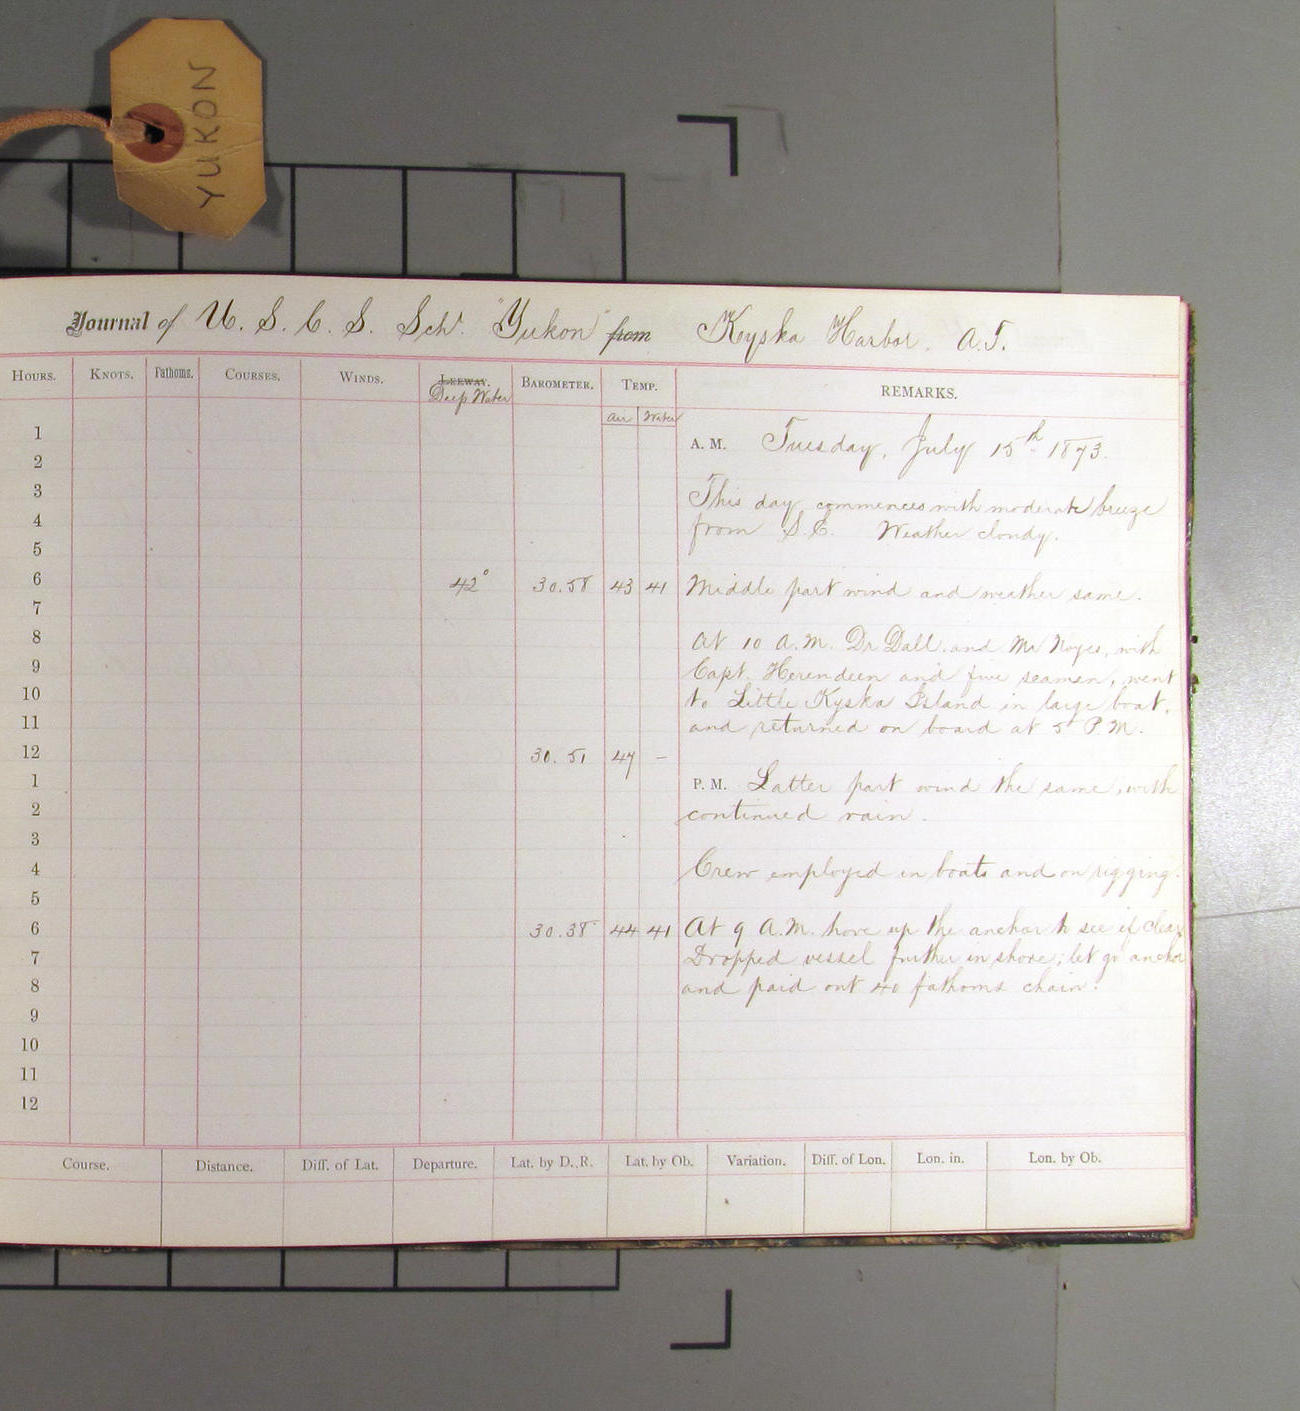 YUKON
Journal of U. S. C. S. Schr. "Yukon" from Kyska Harbor. A.T.
HOURS. KNOTS. Fathoms. COURSES. WINDS. LEEWAY. BAROMETER. TEMP. REMARKS.
Deep Water
Air Water
1 A. M. Tuesday, July 15th 1873.
2
3 This day commences with moderate breeze
4 from S.E. Weather cloudy.
5
6 42° 30.58 43 41 Middle part wind and weather same.
7
8 At 10 A.M. Dr Dall and Mr Noyes, with
9 Capt. Herendeen and five seamen, went
10 to Little Kyska Island in large boat,
11 and returned on board at 5 P.M.
12 30.51 47 –
1 P. M. Latter part wind the same, with
2 continued rain.
3
4 Crew employed in boats and on rigging.
5
6 30.38 44 41 At 9 A.M. hove up the anchor to see if clear
7 Dropped vessel further in shore; let go anchor
8 and paid out 40 fathoms chain.
9
10
11
12
Course. Distance. Diff. of Lat. Departure. Lat. by D. R. Lat. by Ob. Variation. Diff. of Lon. Lon. in. Lon. by Ob.